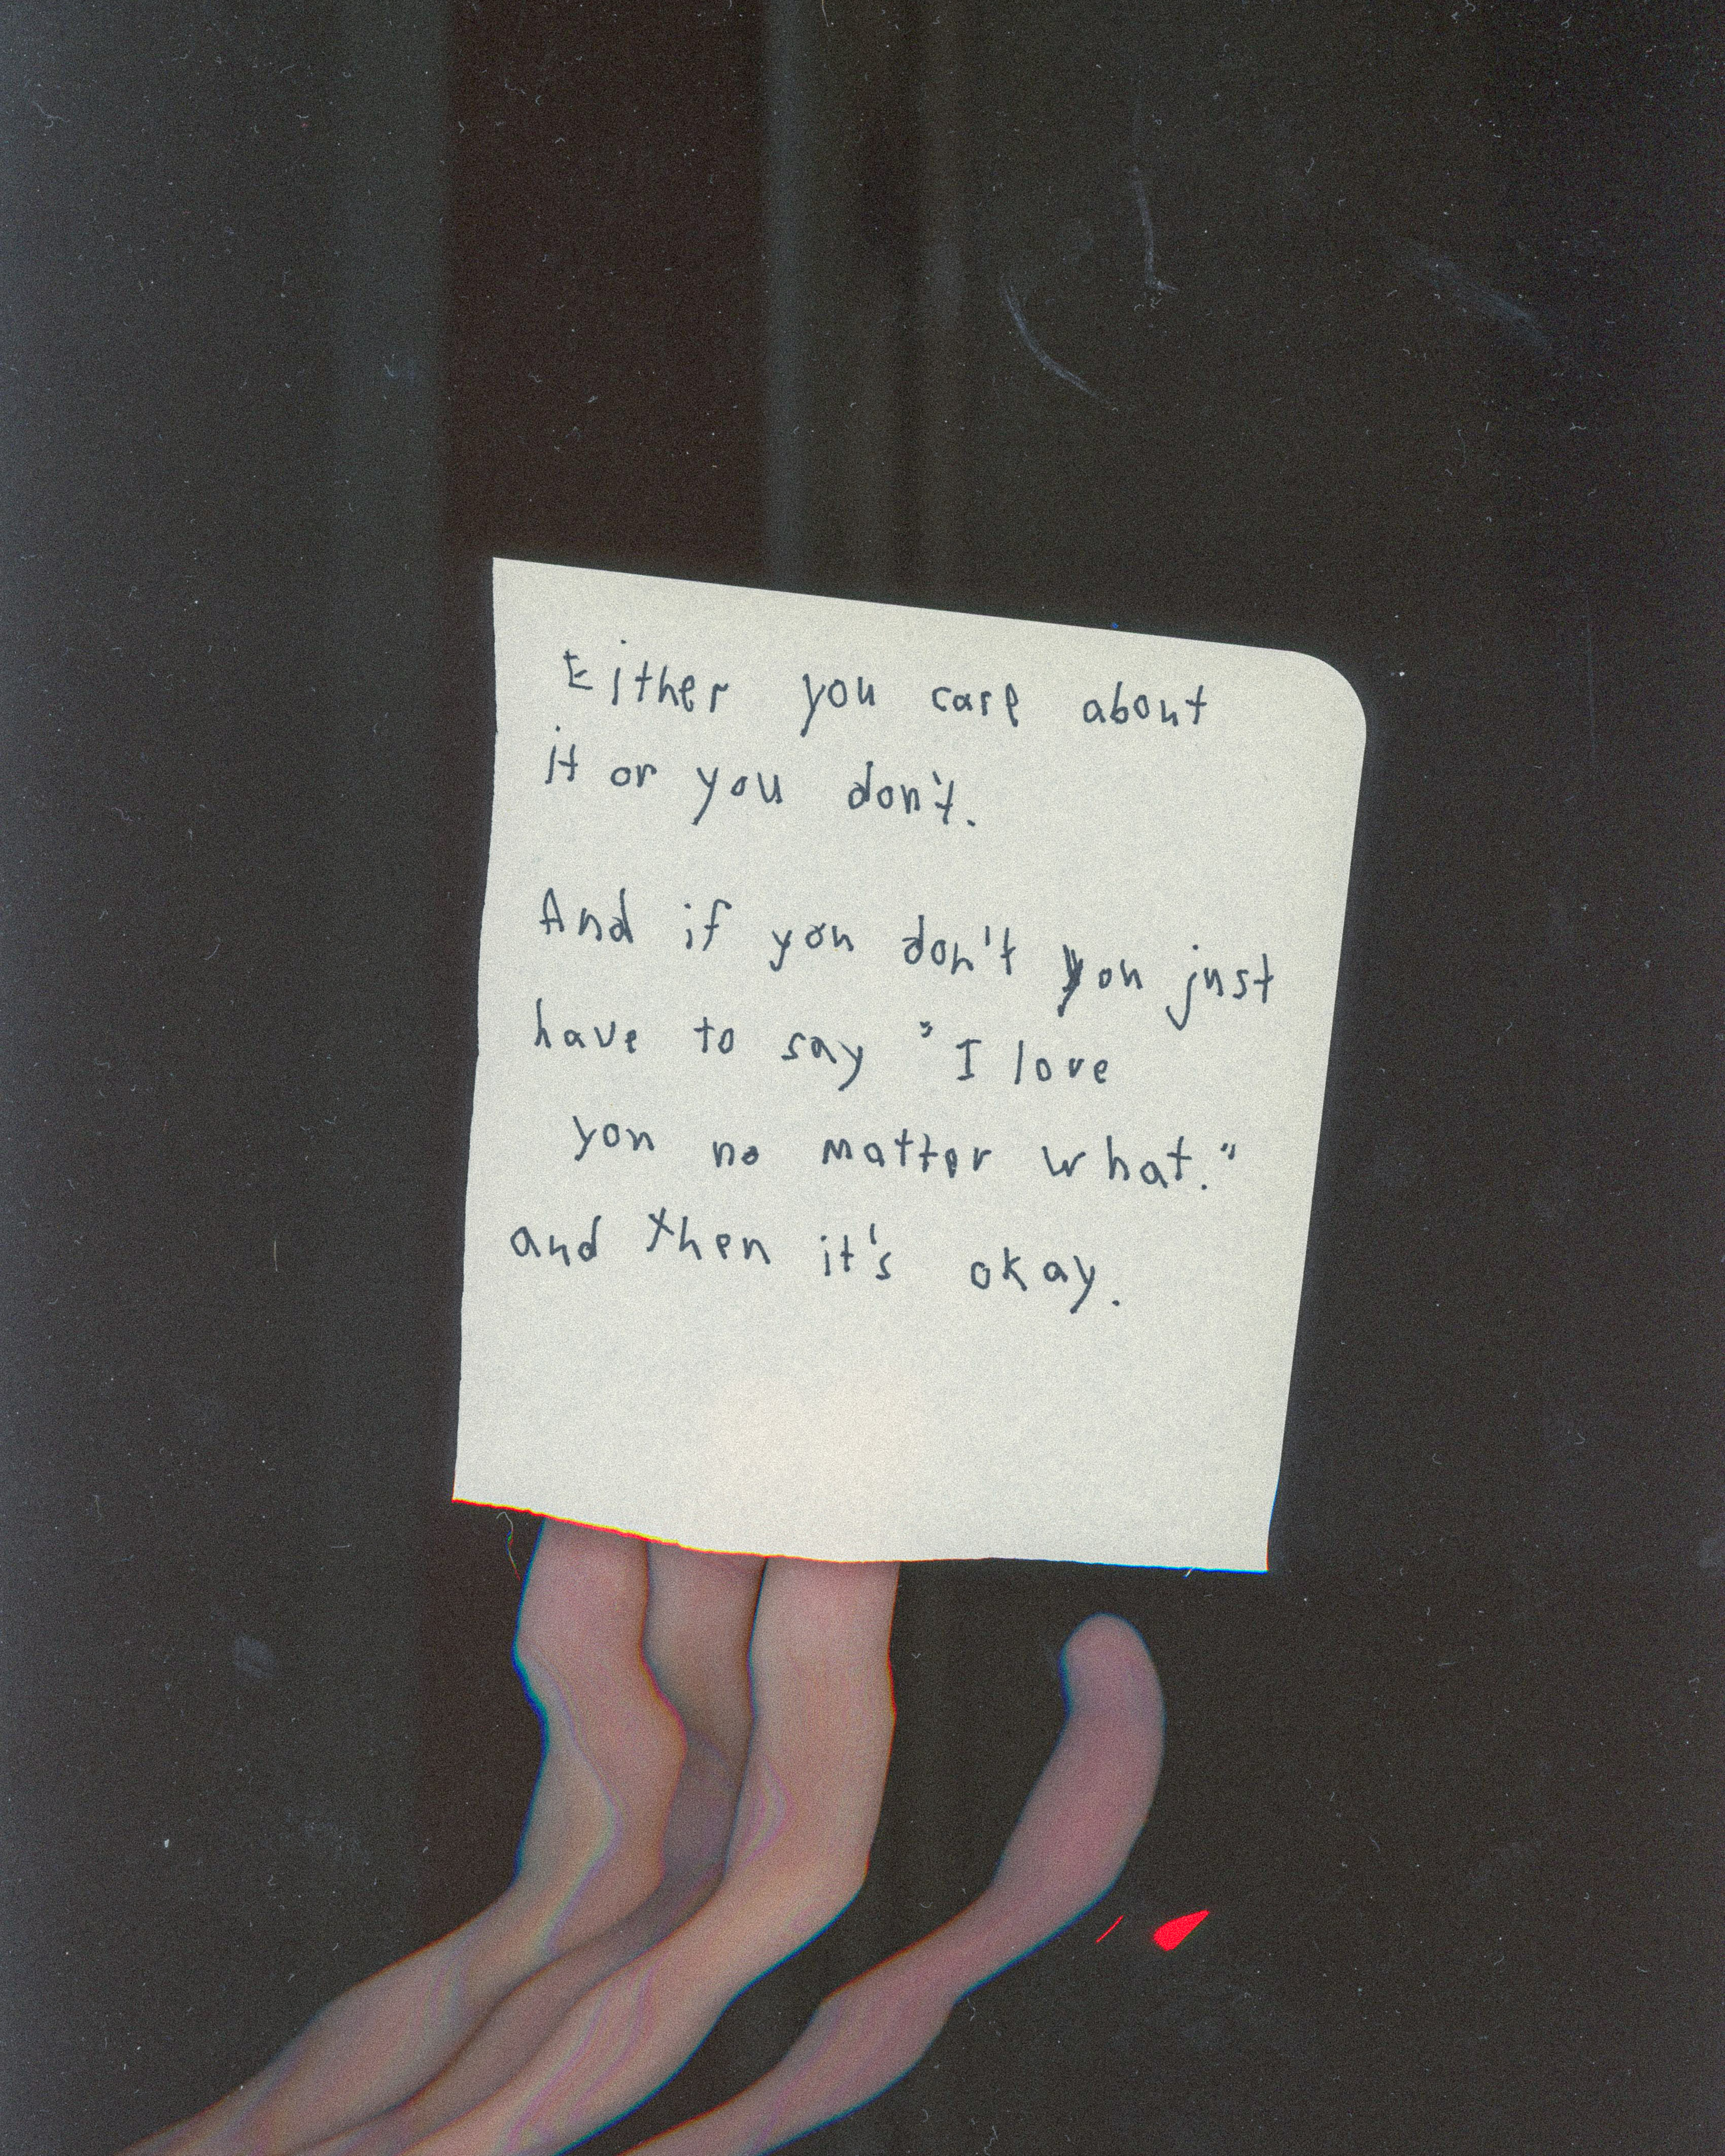 Either you care about
it or you don't.
And if you don't you just
have to say "I love
you no matter what."
and then it's okay.